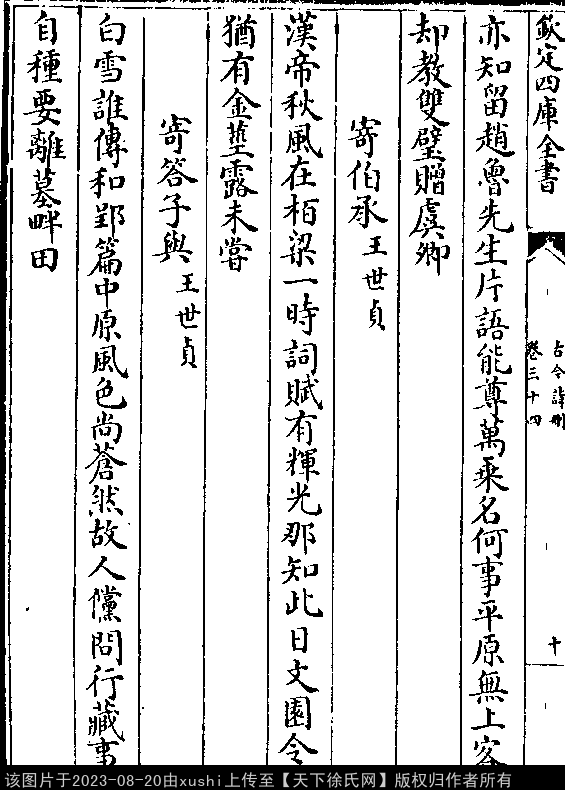 欽定四庫全書
古今詩刪
卷三十四
十
亦知留趙魯先生片語能尊萬乘名何事平原無上客
却教雙璧贈虞卿
寄伯承王世貞
漢帝秋風在栢梁一時詞賦有輝光那知此日文園令
猶有金莖露未嘗
寄答子與王世貞
白雪誰傳和郢篇中原風色尚蒼然故人儻問行藏事
自種要離墓畔田
该图片于2023-08-20由xushi上传至【天下徐氏网】版权归作者所有